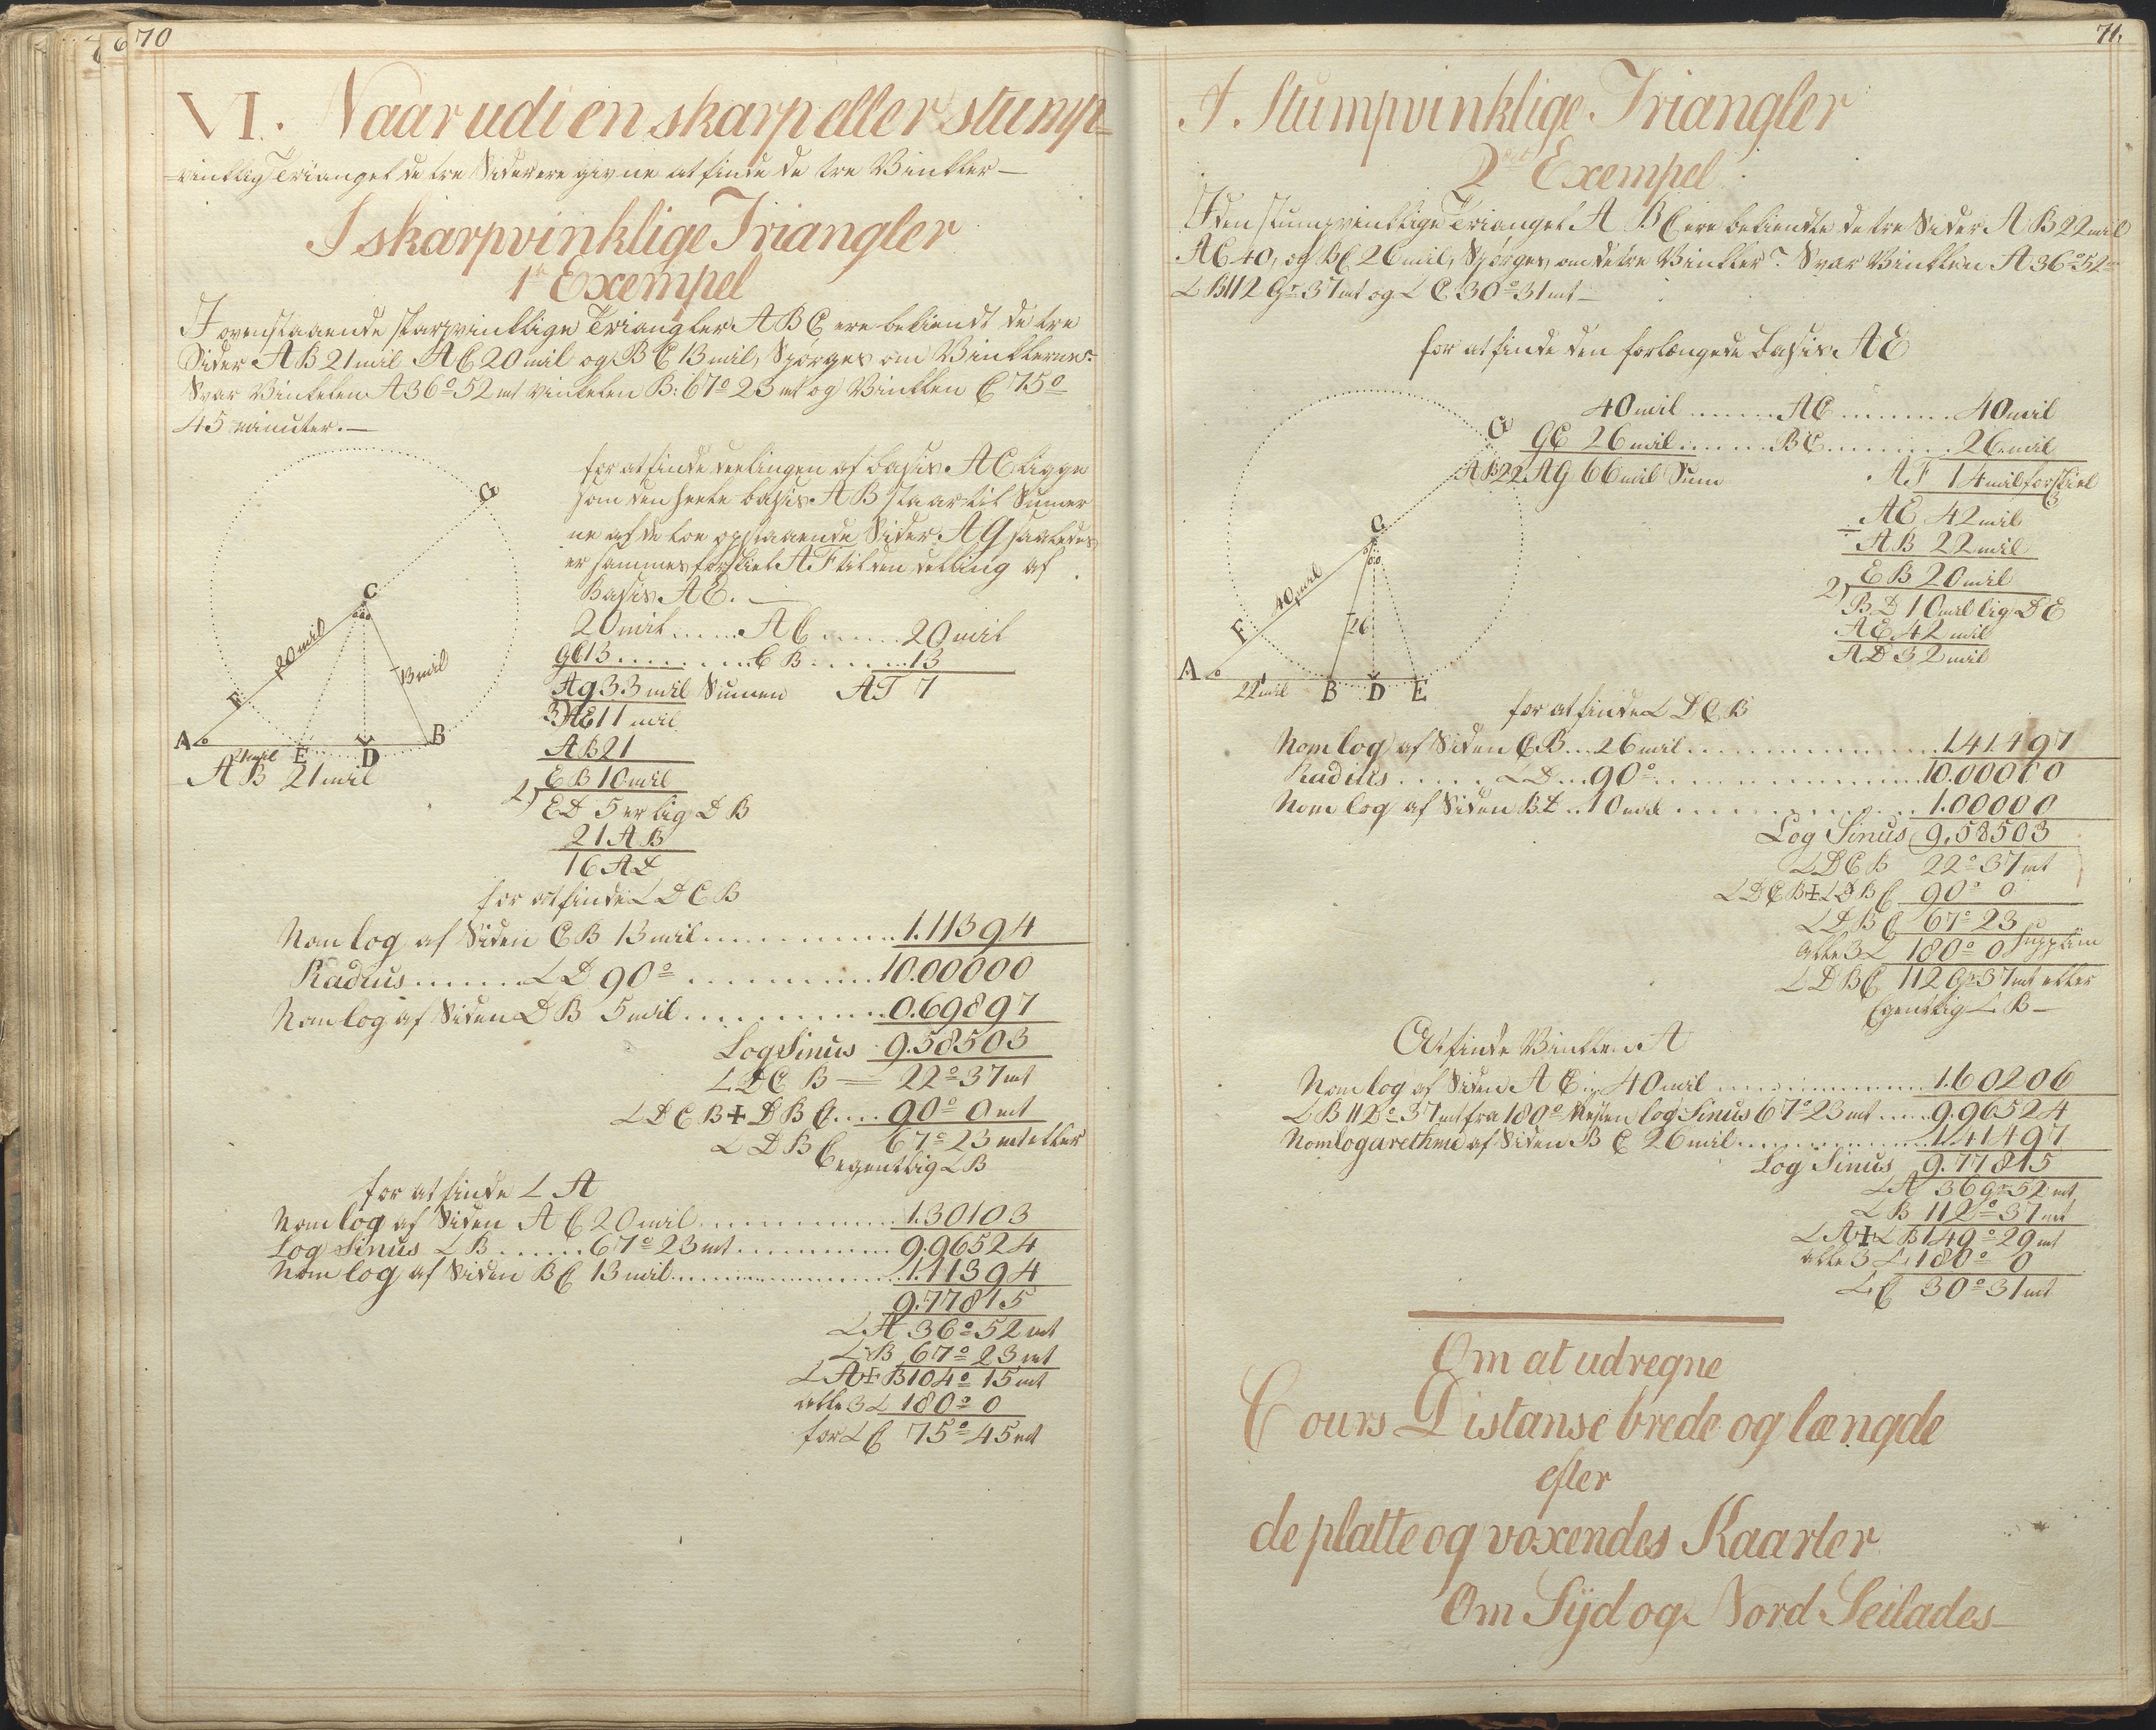 70
VI. Naar udi en skarp eller stump-
=vinklig Triangel de tre Sider ere givne at finde de tre Vinkler —
I skarpvinklige Triangler
1te Exempel
I ovenstaaende skarpvinklige Triangler A B C ere bekiendt de tre
Sider A B 21 mil A C 20 mil og B C 13 mil, Spørges om Vinklerne?
Svar Vinkelen A 36° 52 mt vinkelen B: 67° 23 mt og Vinklen C 75°
45 minuter. —
for at finde deelingen af basis A E ligge
som den heele basis A B staar til Sumer
ne af de toe opstaaende Sider A G saaledes
er sammes forskiel A F til den deeling af
Basis A E. —
20 mil ...... A C ...... 20 mil
GC 13 ......... C B ...... 13
AG 33 mil Sumen A F 7
3) AE 11 mil
A B 21
E B 10 mil
2) E D 5 er lig D B
21 A B
16 A D
G
C
20 mil
13 mil
F
A
21 mil
E
D
B
A B 21 mil
for at finde ∠ D C B
Nom log af Siden C B 13 mil ............ 1.11394
Radius ....... ∠ D 90° ............ 10.00000
Nom log af Siden D B 5 mil ............ 0.69897
Log Sinus 9.58503
∠ D C B = 22° 37 mt
∠ D C B + D B C .... 90° 0 mt
∠ D B C 67° 23 mt eller
egentlig ∠ B
for at finde ∠ A
Nom log af Siden A C 20 mil ............ 1.30103
Log Sinus ∠ B ...... 67° 23 mt ............ 9.96524
Nom log af Siden B C 13 mil ............ 1.11394
9.77815
∠ A 36° 52 mt
∠ B 67° 23 mt
∠ A + B 104° 15 mt
alle 3 ∠ 180° 0
for ∠ C 75° 45 mt
71.
I. Stumpvinklige Triangler
2det Exempel
I den stumpvinklige Triangel A B C ere bekiendte de tre Sider A B 22 mil
A C 40, og B C 26 mil, Spørges om de tre Vinkler? Svar Vinklen A 36° 52
∠ B 112 Gr 37 mt og ∠ C 30° 31 mt —
for at finde den forlængede Basis A E
40 mil ........ A C ......... 40 mil
GC 26 mil ........ B C ......... 26 mil
A B 22 AG 66 mil Sum A F 14 mil forskiel
3
A E 42 mil
÷ A B 22 mil
E B 20 mil
2) B D 10 mil lig D E
A E 42 mil
A D 32 mil
G
C
40 mil
F
26
A
22 mil
B
D
E
for at finde ∠ D C B
Nom log af Siden C B ... 26 mil ............ 1.41497
Radius ...... ∠ D ... 90° ............ 10.00000
Nom log af Siden B D .. 10 mil ............ 1.00000
Log Sinus 9.58503
∠ D C B 22° 37 mt
∠ D C B + ∠ D B C 90° 0
∠ D B C 67° 23
alle 3 ∠ 180° 0 Supplim
∠ D B C 112 Gr 37 mt eller
Egentlig ∠ B —
At finde Vinklen A
Nom log af Siden A C ... 40 mil ............ 1.60206
∠ B 112° 37 mt fra 180° Resten log Sinus 67° 23 mt ..... 9.96524
Nomlogarethme af Siden B C 26 mil ............ 1.41497
Log Sinus 9.77815
∠ A 36 gr 52 mt
∠ B 112° 37 mt
∠ A + ∠ B 149° 29 mt
alle 3 ∠ 180° 0
∠ C 30° 31 mt
Om at udregne
Cours Distanse brede og længde
efter
de platte og voxendes Kaarter
Om Syd og Nord Seilades —